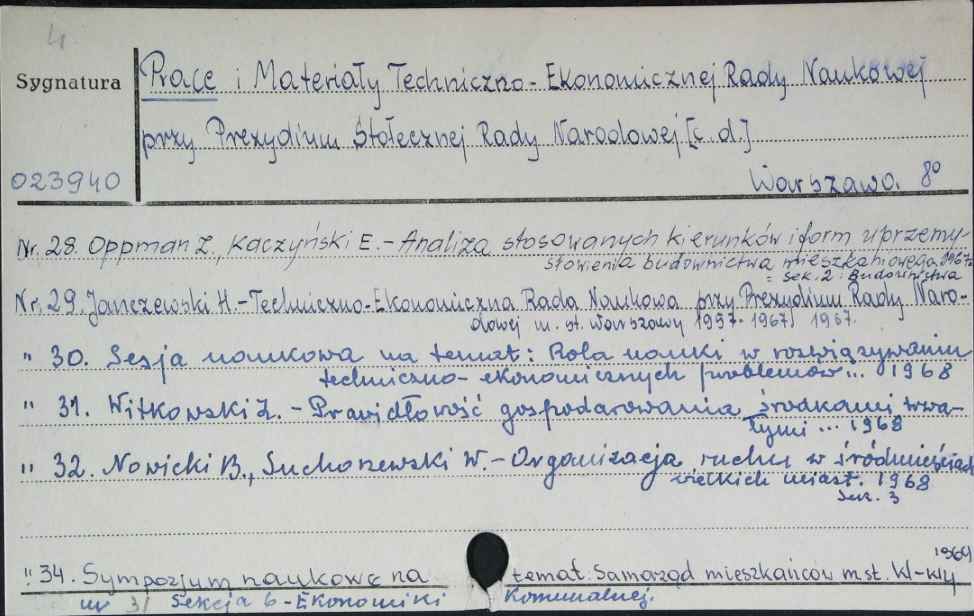 4
Prace i Materiały Techniczno-Ekonomicznej Rady Naukowej
Sygnatura
przy Prezydium Stołecznej Rady Narodowej [c.d.]
023940
Warszawa. 8º
Nr. 28. Oppman Z., Kaczyński E.- Analiza stosowanych kierunków i form uprzemy-
słowienia budownictwa mieszkaniowego. 1967
sek. 2: Budownictwa
Nr. 29. Janczewski H.-Techniczno-Ekonomiczna Rada Naukowa przy Prezydium Rady Naro-
dowej m. st. Warszawy 1957-1967) 1967.
" 30. Sesja naukowa na temat: Rola nauki w rozwiązywaniu
techniczno-ekonomicznych problemów... 1968
" 31. Witkowski Z.-Prawidłowość gospodarowania środkami trwa-
łymi ... 1968
" 32. Nowicki B., Suchorzewski W.-Organizacja ruchu w śródmieściach
wielkich miast. 1968
Sek. 3
1969
" 34. Sympozjum naukowe na temat. Samorząd mieszkańców m.st. W-wy
Sekcja 6 - Ekonomiki Komunalnej.